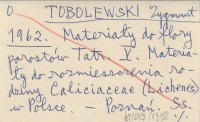 O TOBOLEWSKI Zygmunt
1962. Materiały do flory
porostów Tatr. V. Materia-
ły do rozmieszczenia ro-
dziny Caliciaceae (Lichenes)
w Polsce. – Poznań. Ss.